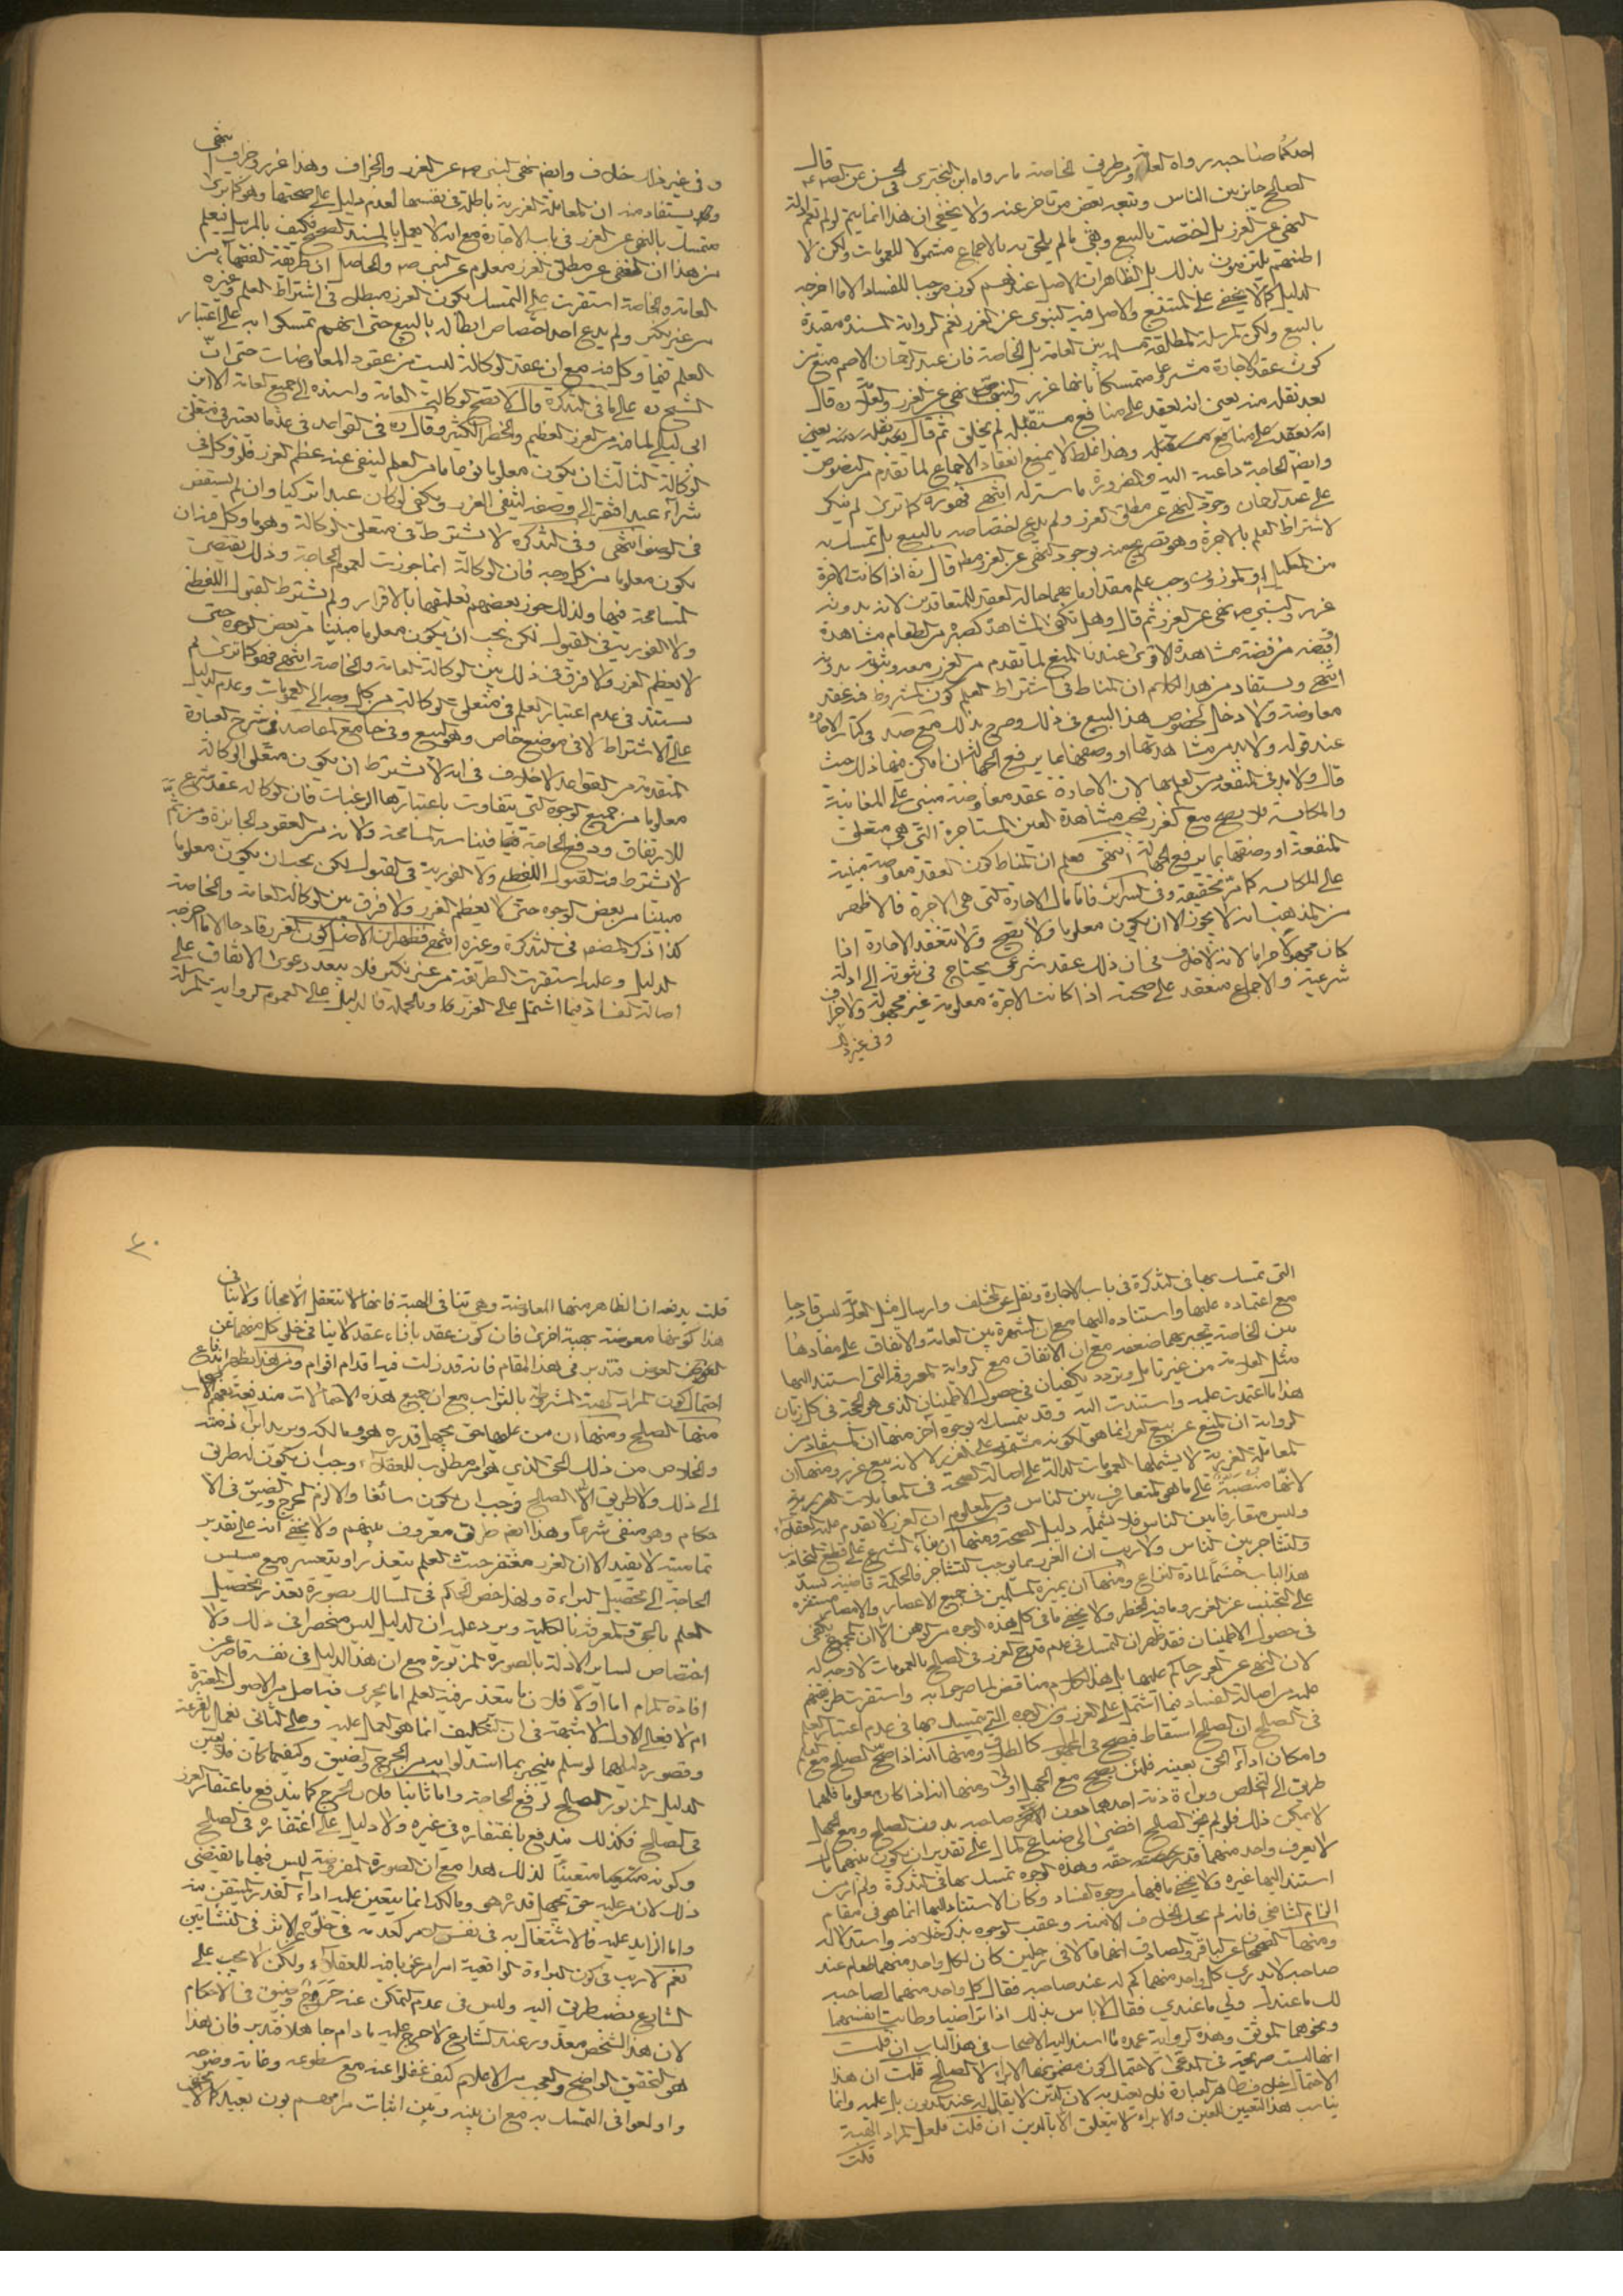 احدكما صاحبه رواه العامة ومن طريق الخاصة ما رواه ابن البختري في الحسن عن الصادق ع قال
الصلح جايز بين الناس وتبعه بعض من تاخر عنه ولا يخفى ان هذا انما يتم لو لم تعم ادلة
النهي عن الغرر بل اختصت بالبيع وبقي ما لم يلحق به بالاجماع مشمولا للعمومات ولكن لا
اظنهم يلتزمون بذلك بل الظاهر ان الاصل عندهم كونه موجبا للفساد الا ما اخرجه
الدليل كما لا يخفى على المتتبع والاصل فيه النبوي عن الغرر نعم الرواية المسندة مقيدة
بالبيع ولكن المرسلة المطلقة مسلمة بين العامة بل الخاصة فان عبد الرحمان الاصم منع من
كون عقد الاجارة مشروعا متمسكا بانها غرر والنبي ص نهى عن الغرر والعلامة ره قال
بعد نقله منه يعني انه يعقد على منافع مستقبلة لم تخلق ثم قال بعد نقله منه يعني
انه يعقد على منافع مستقبلة وهذا غلط لا يمنع انعقاد الاجماع لما تقدم من النصوص
وايضا الحاجة داعية اليه والضرورة ماسة له انتهى فهو ره كما ترى لم ينكر
على عبد الرحمان وجود النهي عن مطلق الغرر ولم يدع اختصاصه بالبيع بل تمسك به
لاشتراط العلم بالاجرة وهو تصريح منه بوجود النهي عن الغرر مطلقا قال ره اذا كانت الاجرة
من المكيل او الموزون وجب علم مقدارها بهما حالة العقد للمتعاقدين لانه بدونه
غرر والنبي ص نهى عن الغرر ثم قال وهل تكفي المشاهدة كصبرة من الطعام مشاهدة
او قبضة من فضة مشاهدة الاقوى عندنا المنع لما تقدم من الغرر معه وثبوته بدونه
انتهى ويستفاد من هذا الكلام ان المناط في اشتراط العلم كون المشروط فيه عقد
معاوضة ولا دخل لخصوص هذا البيع في ذلك وصرح بذلك مع صد في كتاب الاجارة
عند قوله ولا بد من مشاهدتها او وصفها بما يرفع الجهالة ان امكن منها ذلك حيث
قال ولا بد في المنفعة من العلم بها لان الاجارة عقد معاوضة مبني على المغابنة
والمكايسة فلا يصح مع الغرر فيجب مشاهدة العين المستاجرة التي هي متعلق
المنفعة او وصفها بما يرفع الجهالة انتهى فعلم ان المناط كون العقد معاوضة مبنية
على المكايسة كما مر تحقيقه وفي السرائر فاما مال الاجارة التي هي الاجرة فالاظهر
من المذهب انه لا يجوز الا ان يكون معلوما ولا يصح ولا تنعقد الاجارة اذا
كان مجهولا جزافا لانه لا خلاف في ان ذلك عقد شرعي يحتاج في ثبوته الى ادلة
شرعية والاجماع منعقد على صحته اذا كانت الاجرة معلومة غير مجهولة ولا جزاف
وفي غير ذلك
وفي غير ذلك خلاف وايضا نهى النبي ص عن الغرر والجزاف وهذا غرر وجزاف انتهى
وقد يستفاد منه ان المعاملة الغررية باطلة في نفسها لعدم دليل على صحتها وهو كما ترى
متمسك بالنهي عن الغرر في باب الاجارة مع انه لا يعمل بالمسند الصحيح فكيف بالمرسل فيعلم
من هذا ان النهي عن مطلق الغرر معلوم عن النبي ص والحاصل ان طريقة الفقهاء من
العامة والخاصة استقرت على التمسك بكون الغرر مبطلا في اشتراط العلم وغيره
من غير نكير ولم يدع احد اختصاص ابطاله بالبيع حتى انهم تمسكوا به على اعتبار
العلم فيما وكل فيه مع ان عقد الوكالة ليست من عقود المعاوضات حتى ان
الشيخ ره على ما في التذكرة قال لا تصح الوكالة العامة واسنده الى جميع العامة الا ابن
ابي ليلى لما فيه من الغرر العظيم والخطر الكثير وقال ره في القواعد في عد ما يعتبر في متعلق
الوكالة الثالث ان يكون معلوما نوعا ما من العلم لينتفي عنه عظم الغرر فلو وكله في
شراء عبد افتقر الى وصفه لينتفي الغرر ويكفي لو قال عبدا تركيا وان لم يستقص
في الوصف انتهى وفي التذكرة لا يشترط في متعلق الوكالة وهو ما وكل فيه ان
يكون معلوما من كل وجه فان الوكالة انما جوزت لعموم الحاجة وذلك يقتضي
المسامحة فيها ولذلك جوز بعضهم تعليقها بالاقرار ولم يشترط القبول اللفظي
ولا الفورية في القبول لكن يجب ان يكون معلوما مبينا من بعض الوجوه حتى
لا يعظم الغرر ولا فرق في ذلك بين الوكالة العامة والخاصة انتهى فهو كما ترى لم
يستند في عدم اعتبار العلم في متعلق الوكالة من كل وجه الى العمومات وعدم الدليل
على الاشتراط لا في موضع خاص وهو البيع وفي جامع المقاصد في شرح العبارة
المتقدمة من القواعد لا خلاف في انه لا يشترط ان يكون متعلق الوكالة
معلوما من جميع الوجوه التي يتفاوت باعتبارها الرغبات فان الوكالة عقد شرع
للارتفاق ودفع الحاجة فيناسبه المسامحة ولانه من العقود الجائزة ومن ثم
لا يشترط فيه القبول اللفظي ولا الفورية في القبول لكن يجب ان يكون معلوما
مبينا من بعض الوجوه حتى لا يعظم الغرر ولا فرق بين الوكالة العامة والخاصة
كذا ذكر المصنف في التذكرة وغيره انتهى فظهر ان الاصل كون الغرر قادحا الا ما اخرجه
الدليل وعليه استقرت الطريقة من غير نكير فلا يبعد دعوى الاتفاق على
اصالة الفساد فيما اشتمل على الغرر كما وبالجملة فالدليل على العموم الرواية المرسلة
التي تمسك بها في التذكرة في باب الاجارة ونقل عن المختلف وارسال مثل العلامة ليس قادحا
مع اعتماده عليها واستناده اليها مع ان الشهرة بين العامة والاتفاق على مفادها
من الخاصة يجبر بهما ضعفه مع ان الاتفاق مع الرواية المعروفة التي استند اليها
مثل العلامة من غير تامل وتردد يكفيان في حصول الاطمينان الذي هو الحجة في كل زمان
هذا ما اعتمدت عليه واستندت اليه وقد يتمسك له بوجوه اخر منها ان المستفاد من
الرواية ان المنع عن بيع الغرر انما هو لكونه مشتملا على الغرر لا لانه بيع غرر ومنها ان
المعاملة الغررية لا يشملها العمومات الدالة على اصالة الصحة في المعاملات الغررية
لانها منصبة على ما هو المتعارف بين الناس ومن المعلوم ان الغرر لا يقدم عليه العقلاء
وليس متعارفا بين الناس فلا يشمله دليل الصحة ومنها ان بناء الشرع على قطع التجاذب
والتشاجر بين الناس ولا ريب ان الغرر مما يوجب التشاجر فالحكمة قاضية بسد
هذا الباب حسما لمادة النزاع ومنها ان سيرة المسلمين في جميع الاعصار والامصار مستقرة
على التجنب عن الغرر وما فيه الخطر ولا يخفى ما في كل هذه الوجوه من الوهن الا ان المجموع يكفي
في حصول الاطمينان فقد ظهر ان التمسك في عدم قدح الغرر في الصلح بالعمومات لا وجه له
لان النهي عن الغرر حاكم عليها بل هذا الكلام مناقض لما صرحوا به واستقرت طريقتهم
عليه من اصالة الفساد فيما اشتمل على الغرر ومن الوجوه التي تمسك بها في عدم اعتبار العلم
في الصلح ان الصلح اسقاط فيصح في المجهول كالطلاق ومنها انه اذا صح الصلح مع العلم
وامكان اداء الحق بعينه فلئن يصح مع الجهل اولى ومنها انه اذا كان معلوما فلهما
طريق الى التخلص وبراءة ذمة احدهما دون صاحبه بدون الصلح ومع الجهل
لا يمكن ذلك فلو لم يجز الصلح افضى الى ضياع المال على تقدير ان يكون بينهما مال
لا يعرف واحد منهما قدر حقه وهذه الوجوه تمسك بها في التذكرة ولم ار من
استند اليها غيره ولا يخفى ما فيها من وجوه الفساد وكان الاستناد اليها انما هو في مقام
الزام الشافعي فانه لم يحك الخلاف الا منه وعقب الوجوه بذكر خلافه واستدلاله
ومنها الصحيح عن الباقر والصادق انهما قالا في رجلين كان لكل واحد منهما طعام عند
صاحبه لا يدري كل واحد منهما كم له عند صاحبه فقال كل واحد منهما لصاحبه
لك ما عندك ولي ما عندي فقال لا باس بذلك اذا تراضيا وطابت انفسهما
ونحوهما الموثق وهذه الرواية عمدة ما استند اليه الاصحاب في هذا الباب ان قلت
انها ليست صريحة في المدعى لاحتمال كون مضمونها الابراء لا الصلح قلت ان هذا
الاحتمال خلاف ظاهر العبارة فلا يعتد به لان الدين لا يقال له عند المديون بل عليه وانما
يناسب هذا التعبير العين والابراء لا يتعلق الا بالدين ان قلت فلعل المراد الهبة
قلت
٣٠
قلت يدفعه ان الظاهر منها المعاوضة وهي تنافي الهبة فانها لا تتعقل الا مجانا ولا ينافي
هذا كونها معوضة بهبة اخرى فان كون عقد بازاء عقد لا ينافي خلو كل منهما عن
العوض فتدبر في هذا المقام فانه قد زلت فيه اقدام اقوام ومن هذا يظهر اندفاع
احتمال كون المراد الهبة المشروطة بالثواب مع ان جميع هذه الاحتمالات مندفعة بفهم الاصحاب
منها الصلح ومنها ان من عليه حق يجهل قدره هو ومالكه ويريد ابراء ذمته
والخلاص من ذلك الحق الذي هو امر مطلوب للعقلاء وجب ان يكون له طريق
الى ذلك ولا طريق الا الصلح فوجب ان يكون سائغا والا لزم الحرج والضيق في الا
حكام وهو منفي شرعا وهذا ايضا طريق معروف بينهم ولا يخفى انه على تقدير
تماميته لا يفيد الا ان الغرر مغتفر حيث العلم يتعذر او يتعسر مع مسيس
الحاجة الى تحصيل البراءة ولهذا خص الحكم في المسالك بصورة تعذر تحصيل
العلم بالحق والمعرفة بالكلية ويرد عليه ان الدليل ليس منحصرا في ذلك ولا
اختصاص لساير الادلة بالصورة المزبورة مع ان هذا الدليل في نفسه قاصر عن
افادة المرام اما اولا فلان ما يتعذر فيه العلم اما يجرى فيه اصل من الاصول المعتبرة
ام لا فعلى الاول لا شبهة في ان التكليف انما هو العمل عليه وعلى الثاني نعمل بالقرعة
وقصور دليلها لو سلم ينجبر بما استدلوا به من الحرج والضيق وكيفما كان فلا يعين
الدليل المزبور الصلح لرفع الحاجة واما ثانيا فلان الحرج كما يندفع باغتفار الغرر
في الصلح فكذلك يندفع باغتفاره في غيره ولا دليل على اغتفاره في الصلح
وكونه متعينا لذلك هذا مع ان الصورة المفروضة ليس فيها ما يقتضي
ذلك لان من عليه حق يجهل قدره هو ومالكه انما يتعين عليه اداء القدر المتيقن منه
واما الزايد عليه فالاشتغال به في نفس الامر كعدمه في خلوه عن الاثر في النشاتين
نعم لا ريب في كون البراءة الواقعية امرا مرغوبا فيه للعقلاء ولكن لا يجب على
الشارع نصب طريق اليه وليس في عدم التمكن عنه حرج وضيق في الاحكام
لان هذا الشخص معذور عند الشارع لا حرج عليه ما دام جاهلا فتدبر فان هذا
هو التحقيق الواضح والعجب من الاعلام كيف غفلوا عنه مع سطوعه وغاية وضوحه
واولعوا في التمسك به مع ان بينه وبين اثبات مرامهم بون بعيد كما لا يخفى